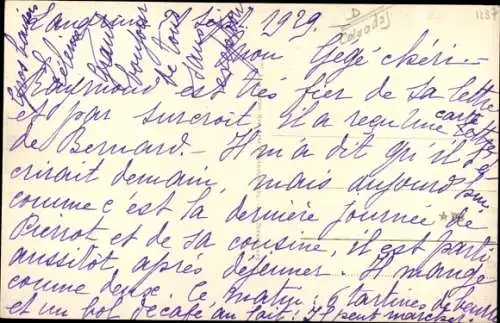 1929.
mon Gégé chéri -
Raymond est très fier de sa lettre
et par surcroit il a reçu une carte lettre
de Bernard. - Il m'a dit qu'il
crirait demain, mais aujourd'hui
comme c'est la dernière journée de
Pierrot et de sa cousine, il est parti
aussitôt après déjeuner. Il mange
comme deux. Ce matin: 6 tartines de beurre
et un bol de café au lait! Il peut marcher.
Gros baisers
Hélène
Grand
bonjour
de tous
sans
exception
Calvados